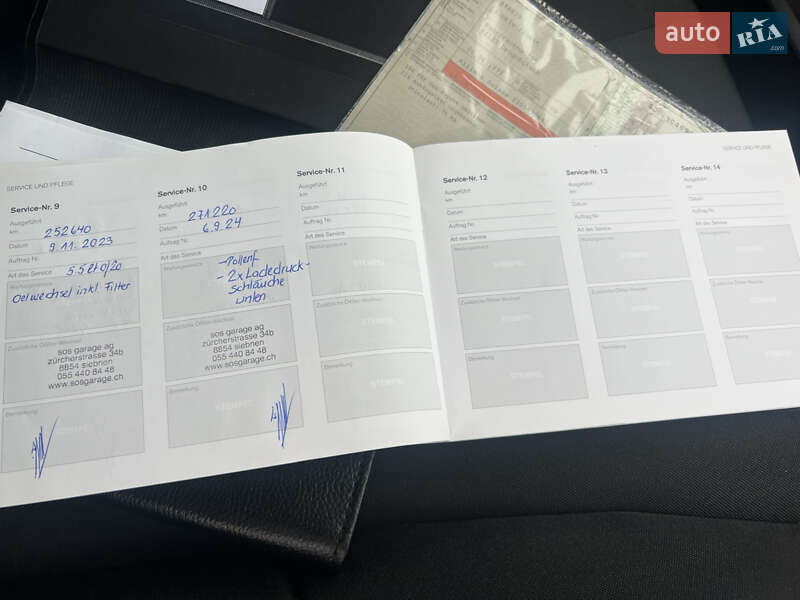 auto RIA .com
SERVICE UND PFLEGE
Service-Nr. 9
Ausgeführt
km 252640
Datum 9.11.2023
Auftrag Nr.
Art des Service 5.5lt 0/20
Wartungsservice
Oelwechsel inkl. Filter
Zusätzliche Ölfilter-Wechsel
sos garage ag
zürcherstrasse 34b
8854 siebnen
055 440 84 48
www.sosgarage.ch
Bemerkung
Service-Nr. 10
Ausgeführt
km 271220
Datum 6.9.24
Auftrag Nr.
Art des Service
Wartungsservice
- Pollenf
- 2x Ladedruck-
schläuche
unten
Zusätzliche Ölfilter-Wechsel
sos garage ag
zürcherstrasse 34b
8854 siebnen
055 440 84 48
www.sosgarage.ch
Bemerkung
Service-Nr. 11
Ausgeführt
km
Datum
Auftrag Nr.
Art des Service
Wartungsservice
STEMPEL
Zusätzliche Ölfilter-Wechsel
Bemerkung
STEMPEL
SERVICE UND PFLEGE
Service-Nr. 12
Ausgeführt
km
Datum
Auftrag Nr.
Art des Service
Wartungsservice
Zusätzliche Ölfilter-Wechsel
STEMPEL
Bemerkung
STEMPEL
Service-Nr. 13
Ausgeführt
km
Datum
Auftrag Nr.
Art des Service
Wartungsservice
Zusätzliche Ölfilter-Wechsel
STEMPEL
Bemerkung
STEMPEL
Service-Nr. 14
Ausgeführt
km
Datum
Auftrag Nr.
Art des Service
Wartungsservice
Zusätzliche Ölfilter-Wechsel
Bemerkung
STEMPEL